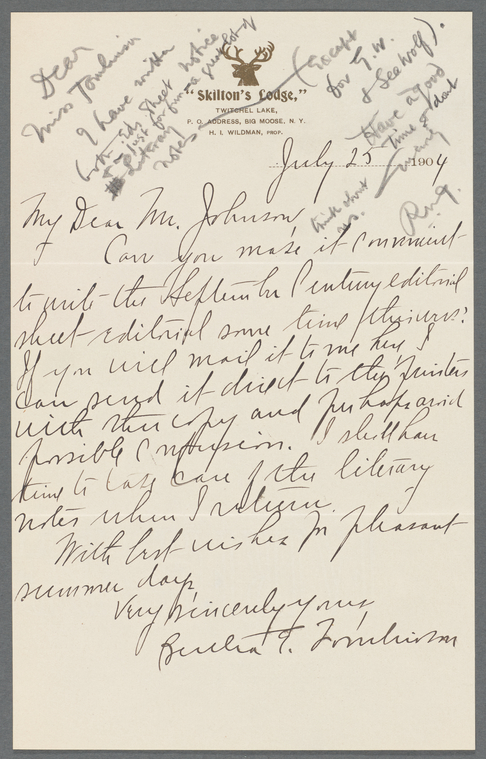 Dear
Miss Tomlinson
I have written
both edit sheet notice
just for fun a great lot of
Literary
notes
(Except
for G.W.
& Sea Wolf).
Have a good
time & don't
worry
think about
us.
R.W.G.
"Skilton's Lodge,"
TWITCHEL LAKE,
P. O. ADDRESS, BIG MOOSE, N. Y.
H. I. WILDMAN, PROP.
July 25 1904
My Dear Mr. Johnson,
Can you make it convenient
to write the September Century editorial
sheet editorial some time this week?
If you will mail it to me here I
can send it direct to the printers
with other copy and perhaps avoid
possible confusion. I shall have
time to take care of the literary
notes when I return.
With best wishes for pleasant
summer days,
Very sincerely yours,
Bertha G. Tomlinson